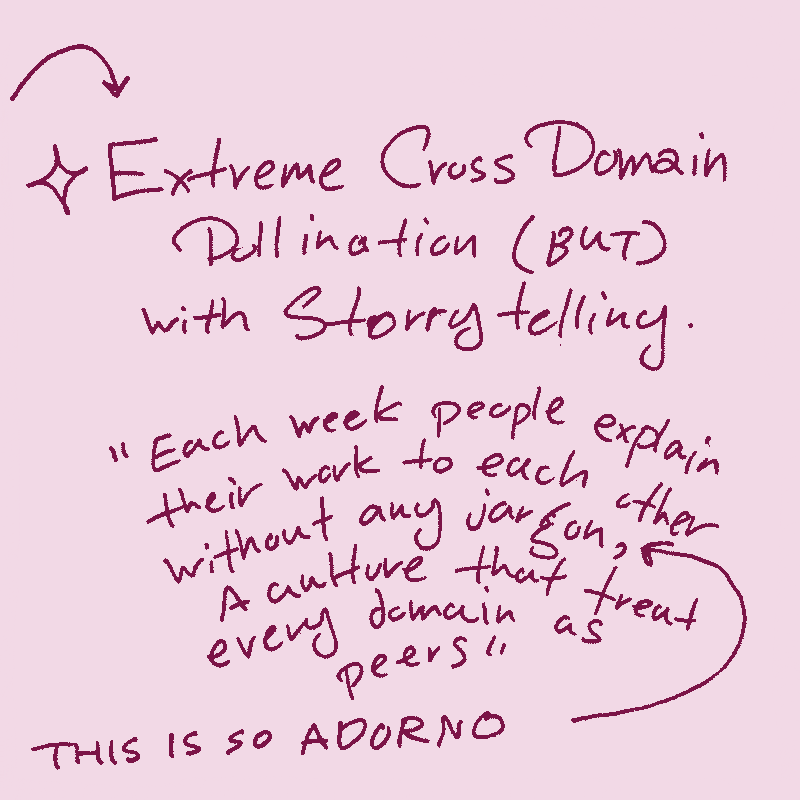 Extreme Cross Domain
Pollination (BUT)
with Storrytelling.
"Each week people explain
their work to each other
without any jargon,
A cultture that treat
every domain as
peers"
THIS IS SO ADORNO